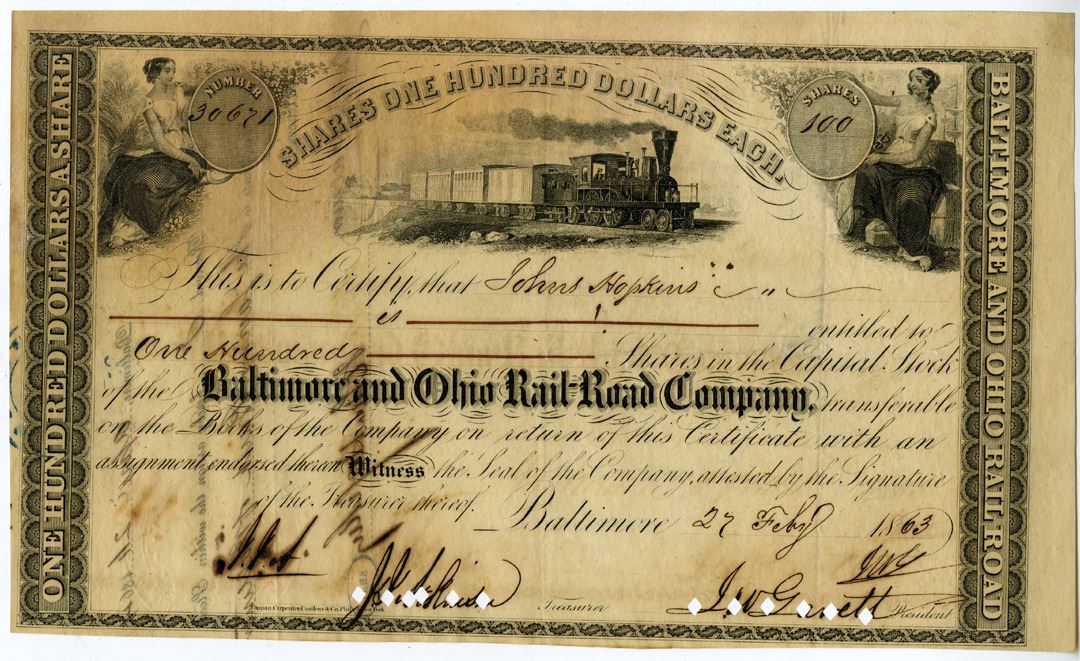 ONE HUNDRED DOLLARS A SHARE
NUMBER
30671
SHARES ONE HUNDRED DOLLARS EACH.
SHARES
100
BALTIMORE AND OHIO RAIL-ROAD
This is to Certify, that Johns Hopkins
is
entitled to
One Hundred Shares in the Capital Stock
of the Baltimore and Ohio Rail-Road Company, transferable
on the Books of the Company on return of this Certificate with an
assignment endorsed thereon Witness the Seal of the Company, attested by the Signature
of the Treasurer thereof. Baltimore 27 Feby 1863
JWG
Toppan, Carpenter, Casilear & Co. Phila.
Treasurer
J W Garrett President